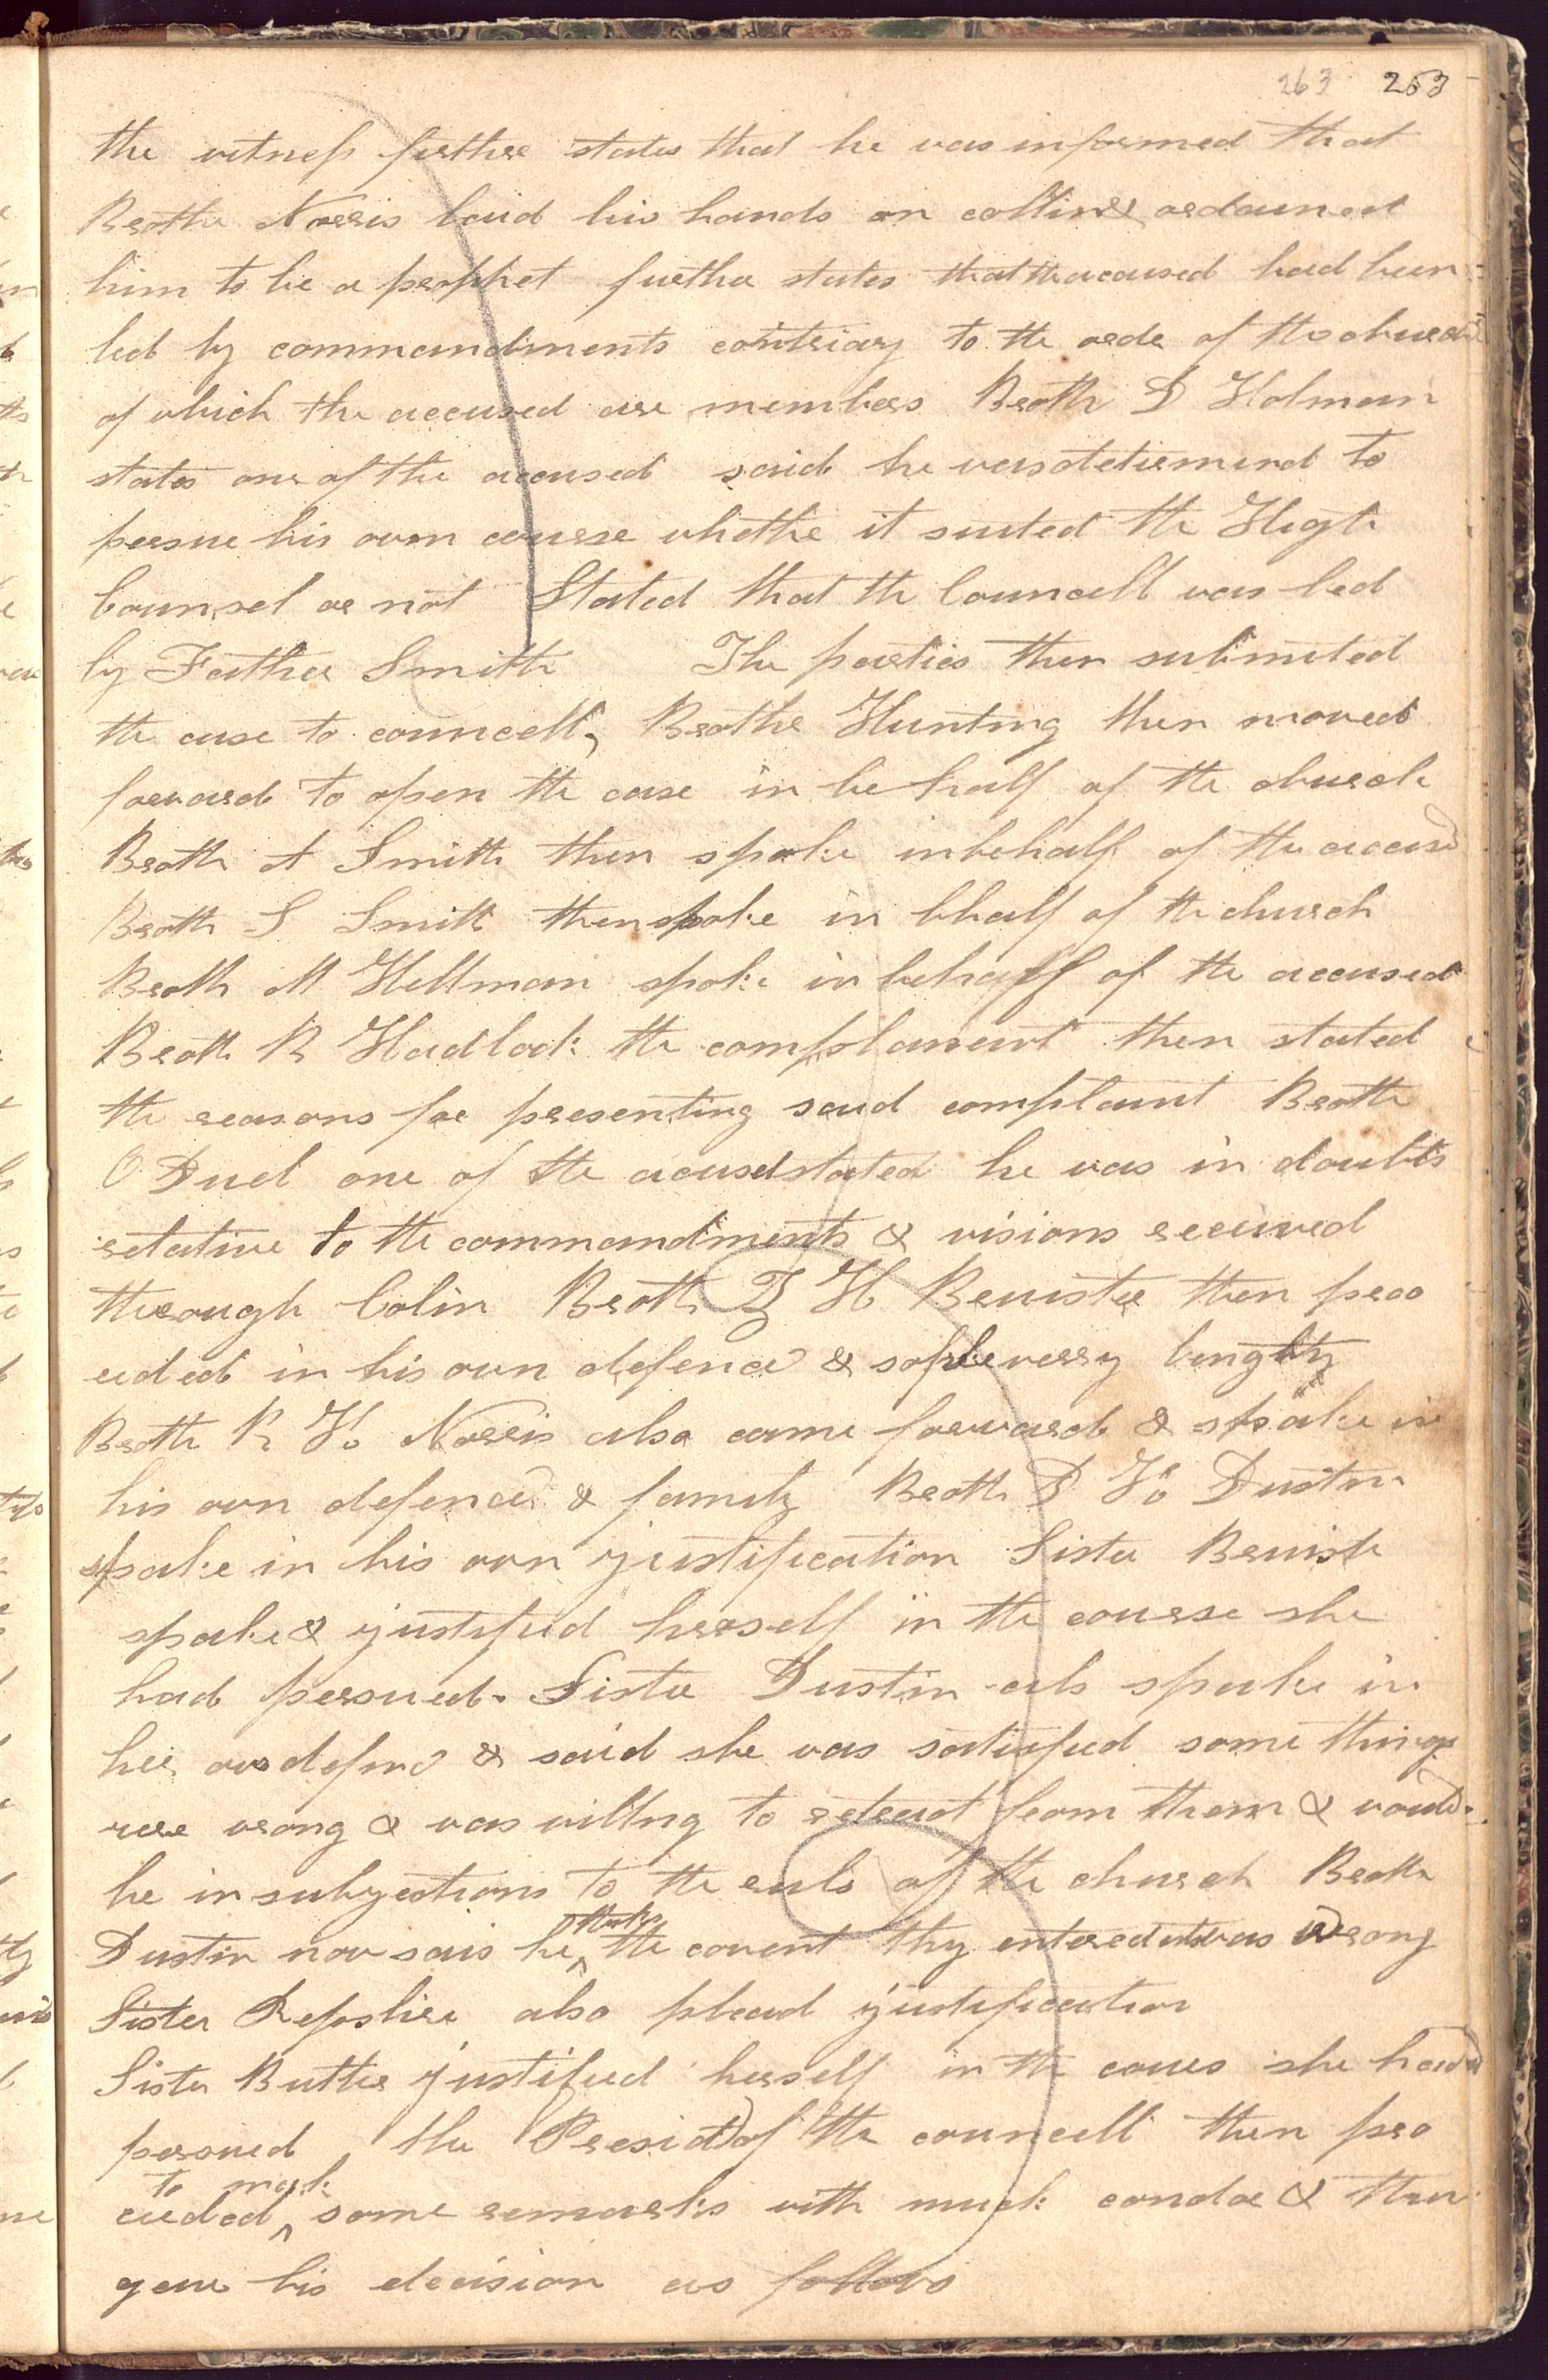 263 263
the witness further states that he was informed that
Brother Norris laid his hands on collin & ordained
him to be a prophet further states that the accused had been
led by commandments contriary to the order of the church
of which the accused are members Broth D Holman
states one of the accused said he was determined to
persue his own course whether it suited the High
Counsel or not Stated that the Councell was led
by Father Smith The parties then submited
the case to councell, Brother Hunting then moved
forward to open the case in be half of the church
Broth A Smith then spoke in behalf of the accused
Broth S Smith then spoke in bhalf of the church
Broth M Hellman spoke in behalf of the accused
Broth R Hadlock the complanant then stated
the reasons for presenting said complaint Broth
O Duel one of the acused stated he was in doubts
relative to the commandments & visions received
through Colin Broth Z H Bruister then proo
ceded in his own defence & verry lengthy
Broth R H. Norris also came forward & spake in
his own defence & family Broth D H. Dustin
spake in his own justification Sister Bruister
spake & justified herself in the course she
had persued. Sister Dustin als spake in
her own defence & said she was satisfied some things
ware wrong & was willing to retract from them & would
be in subjections to the ruls of the church Broth
Dustin now sais he thinks the covent thy entered into was wrong
Sister Repshire also plead justification
Sister Butler justified herself in the cours she had
persued the Presidt of the councell then pro
ceeded to mak some remarks with much candor & then
gave his decision as follows